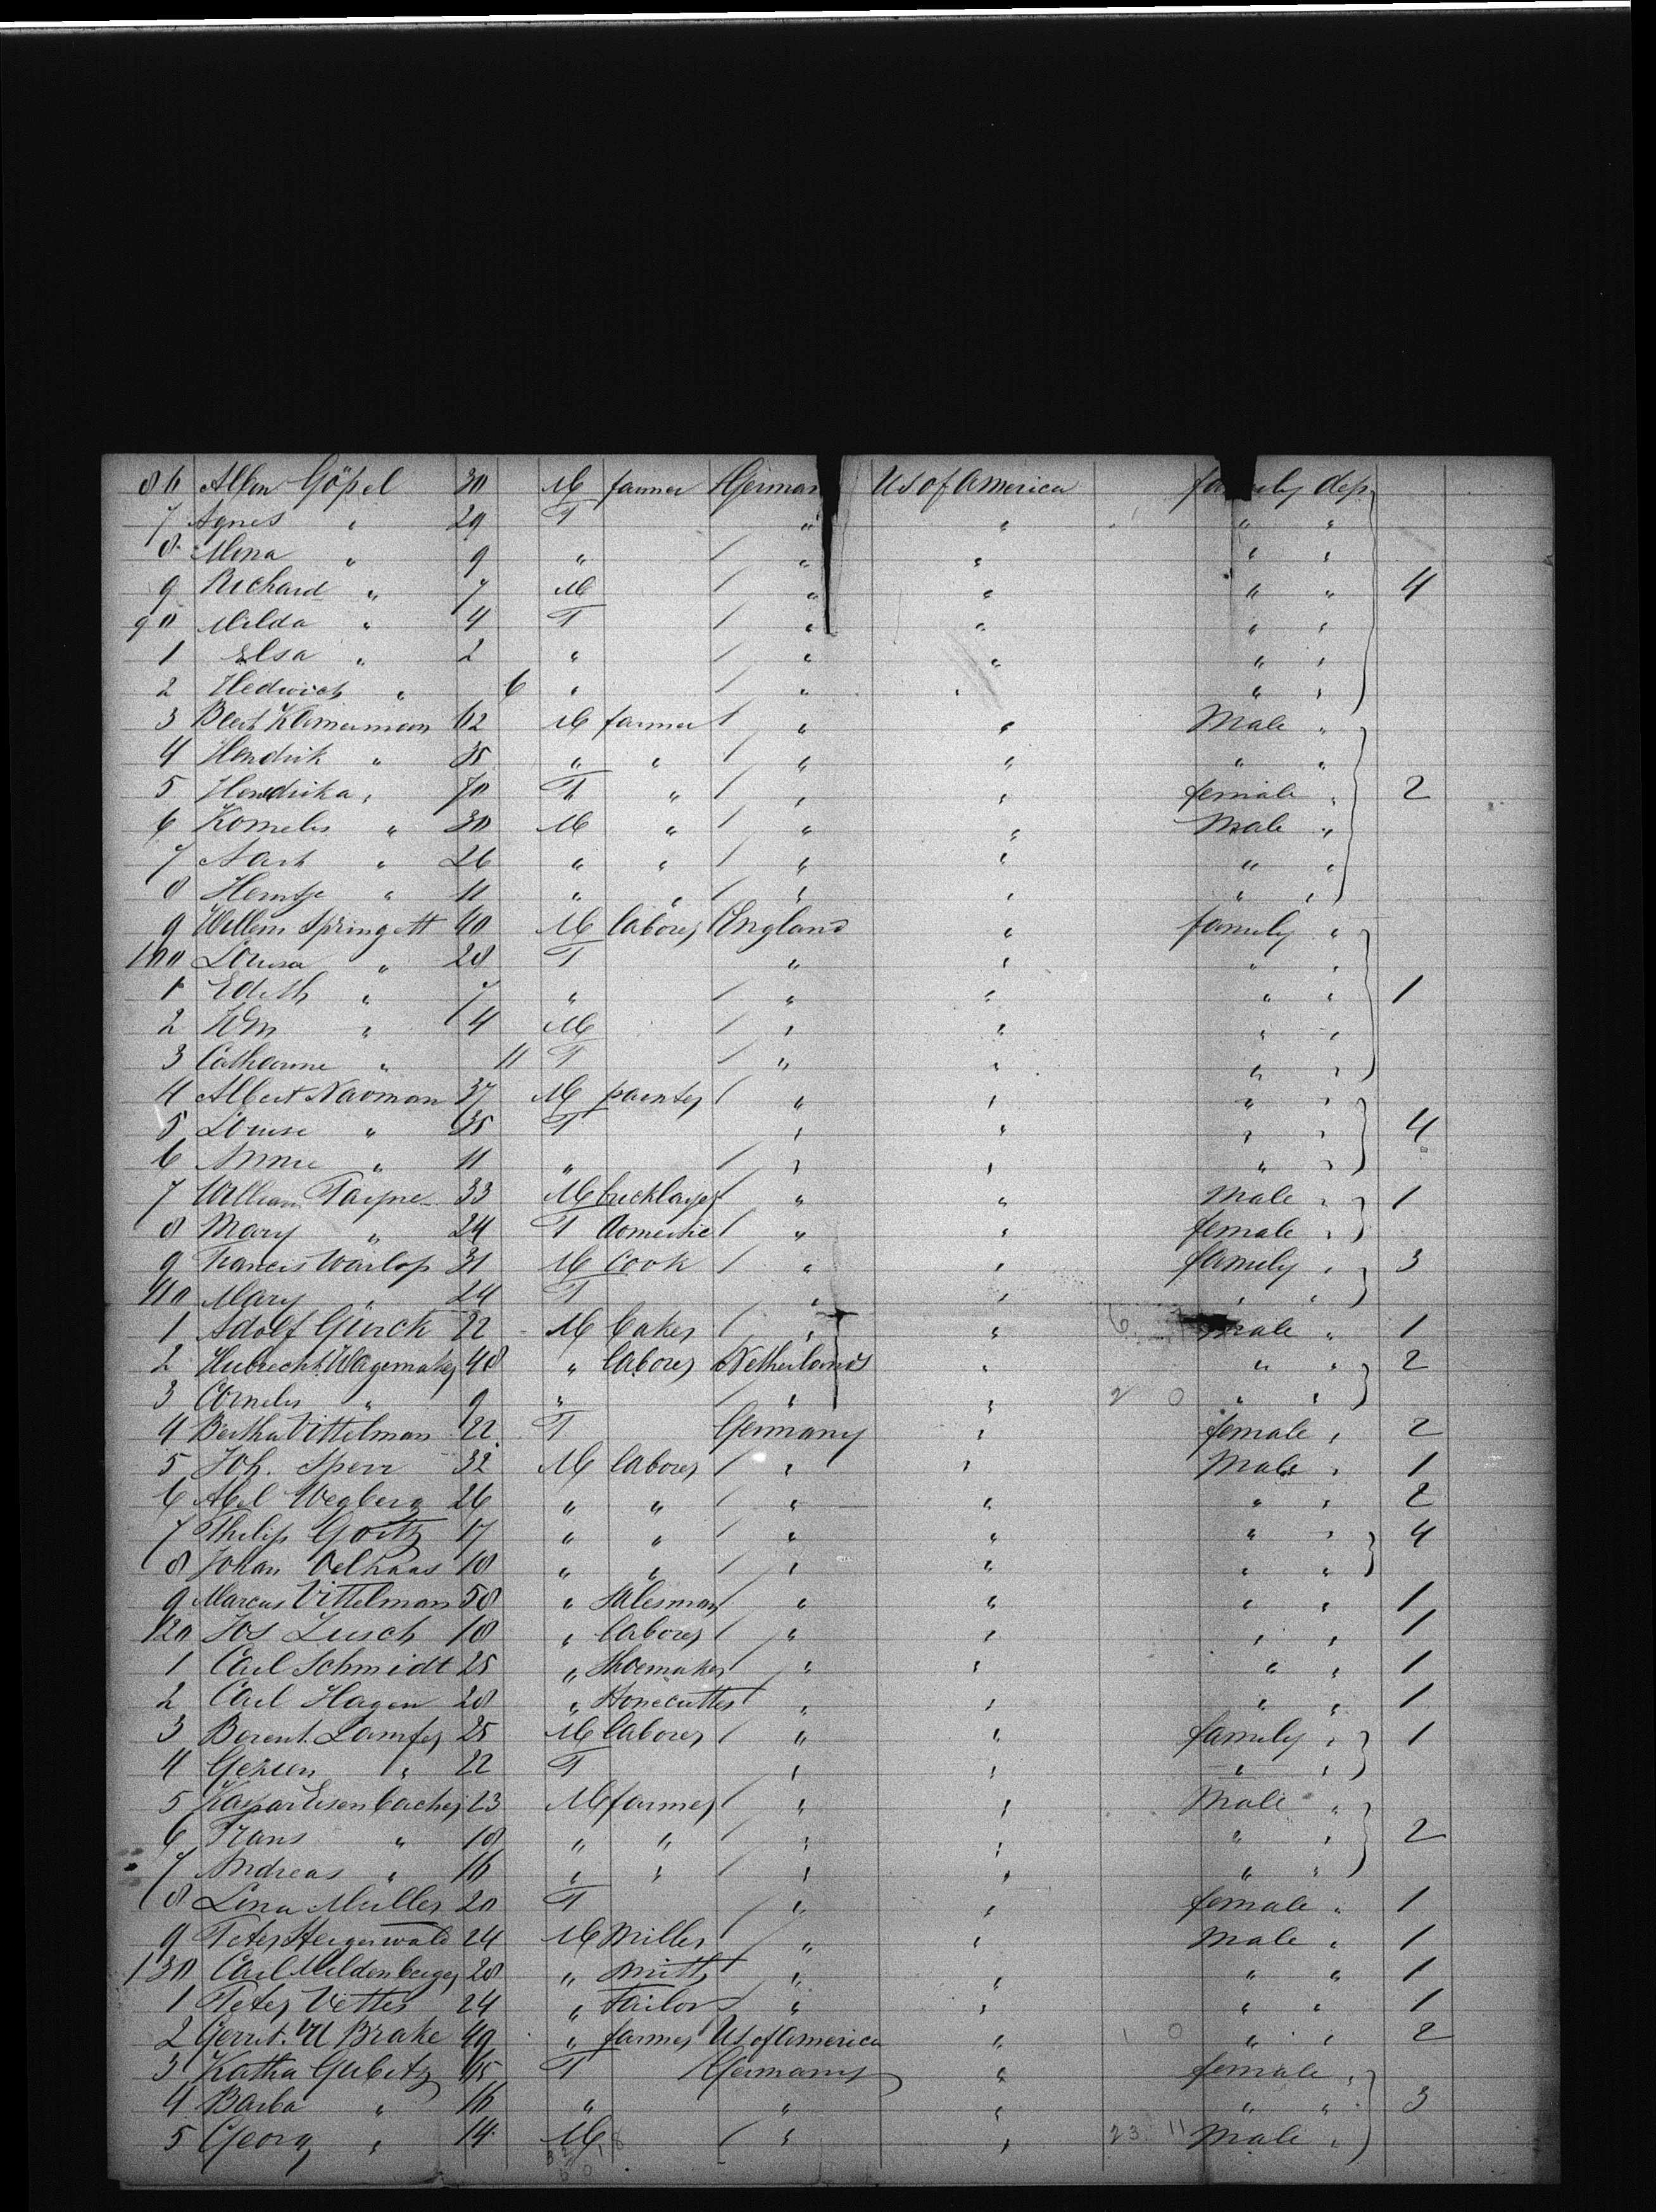 86 Göpel 30 M farmer German Us of America family dep.
7 Agnes " 29 F " " " "
8 Mina " 9 " / " " " "
9 Richard " 7 M / " " " " 4
90 Milda " 4 F / " " " "
1 Elsa " 2 " / " " " "
2 Hedwich " 6 " / " " " "
3 62 M farmer / " " Male "
4 Hendrik " 35 " " / " " " "
5 Hendrika " 70 F " / " " female " 2
6 Kornelis " 30 M " / " " Male "
7 " 26 " " / " " " "
8 " 11 " " / " " " "
9 Willem Springett 40 M laborer England " family "
100 Louisa " 28 F " " " "
1 Edith " 7 " / " " " " 1
2 Wm " 4 M / " " " "
3 Catharine " 11 F / " " " "
4 Albert Navman 37 M painter / " " " "
5 Louise " 35 F " " " " 4
6 Annie " 11 " / " " " "
7 William Payne 33 M bricklayer / " " Male " 1
8 Mary " 24 F domestic / " " female "
9 Francis Warlop 31 M Cook / " " family " 3
110 Mary " 24 F " " " "
1 Adolf Gürck 22 M baker / " " 6 male " 1
2 Hubrecht Wagemaker 48 " laborer Netherlands " " " 2
3 Cornelis " 9 " / " " 2 0 " "
4 Bertha Vittelman 22 F Germany " female " 2
5 Joh. Sperr 32 M laborer / " " Male " 1
6 Abel Wegberg 26 " " / " " " " 2
7 Philip Goetz 17 " " / " " " " 4
8 Johan Oelhaas 18 " " / " " " "
9 Marcus Vittelman 58 " Salesman / " " " " 1
120 Jos Lusch 18 " laborer / " " " " 1
1 Carl Schmidt 25 " Shoemaker / " " " " 1
2 Carl Hagen 28 " Stonecutter / " " " " 1
3 Berent 25 M laborer / " " family " 1
4 " 22 F " " " "
5 Kaspar Eisenbacher 23 M farmer / " " Male "
6 Frans " 18 " " / " " " " 2
7 Andreas " 16 " " / " " " "
8 Lina Muller 20 F / " " female " 1
9 Peter Steigerwald 24 M Miller / " " Male " 1
130 Carl Mildenberger 28 " Smith / " " " " 1
1 Peter Vetter 24 " Tailor / " " " " 1
2 Gerrit Brake 49 " farmer Us of America " 1 0 " " 2
3 Katha Gubitz 45 F Germany " female "
4 Barba " 16 " " " " " 3
5 Georg " 14 M / " " 23 11 Male "